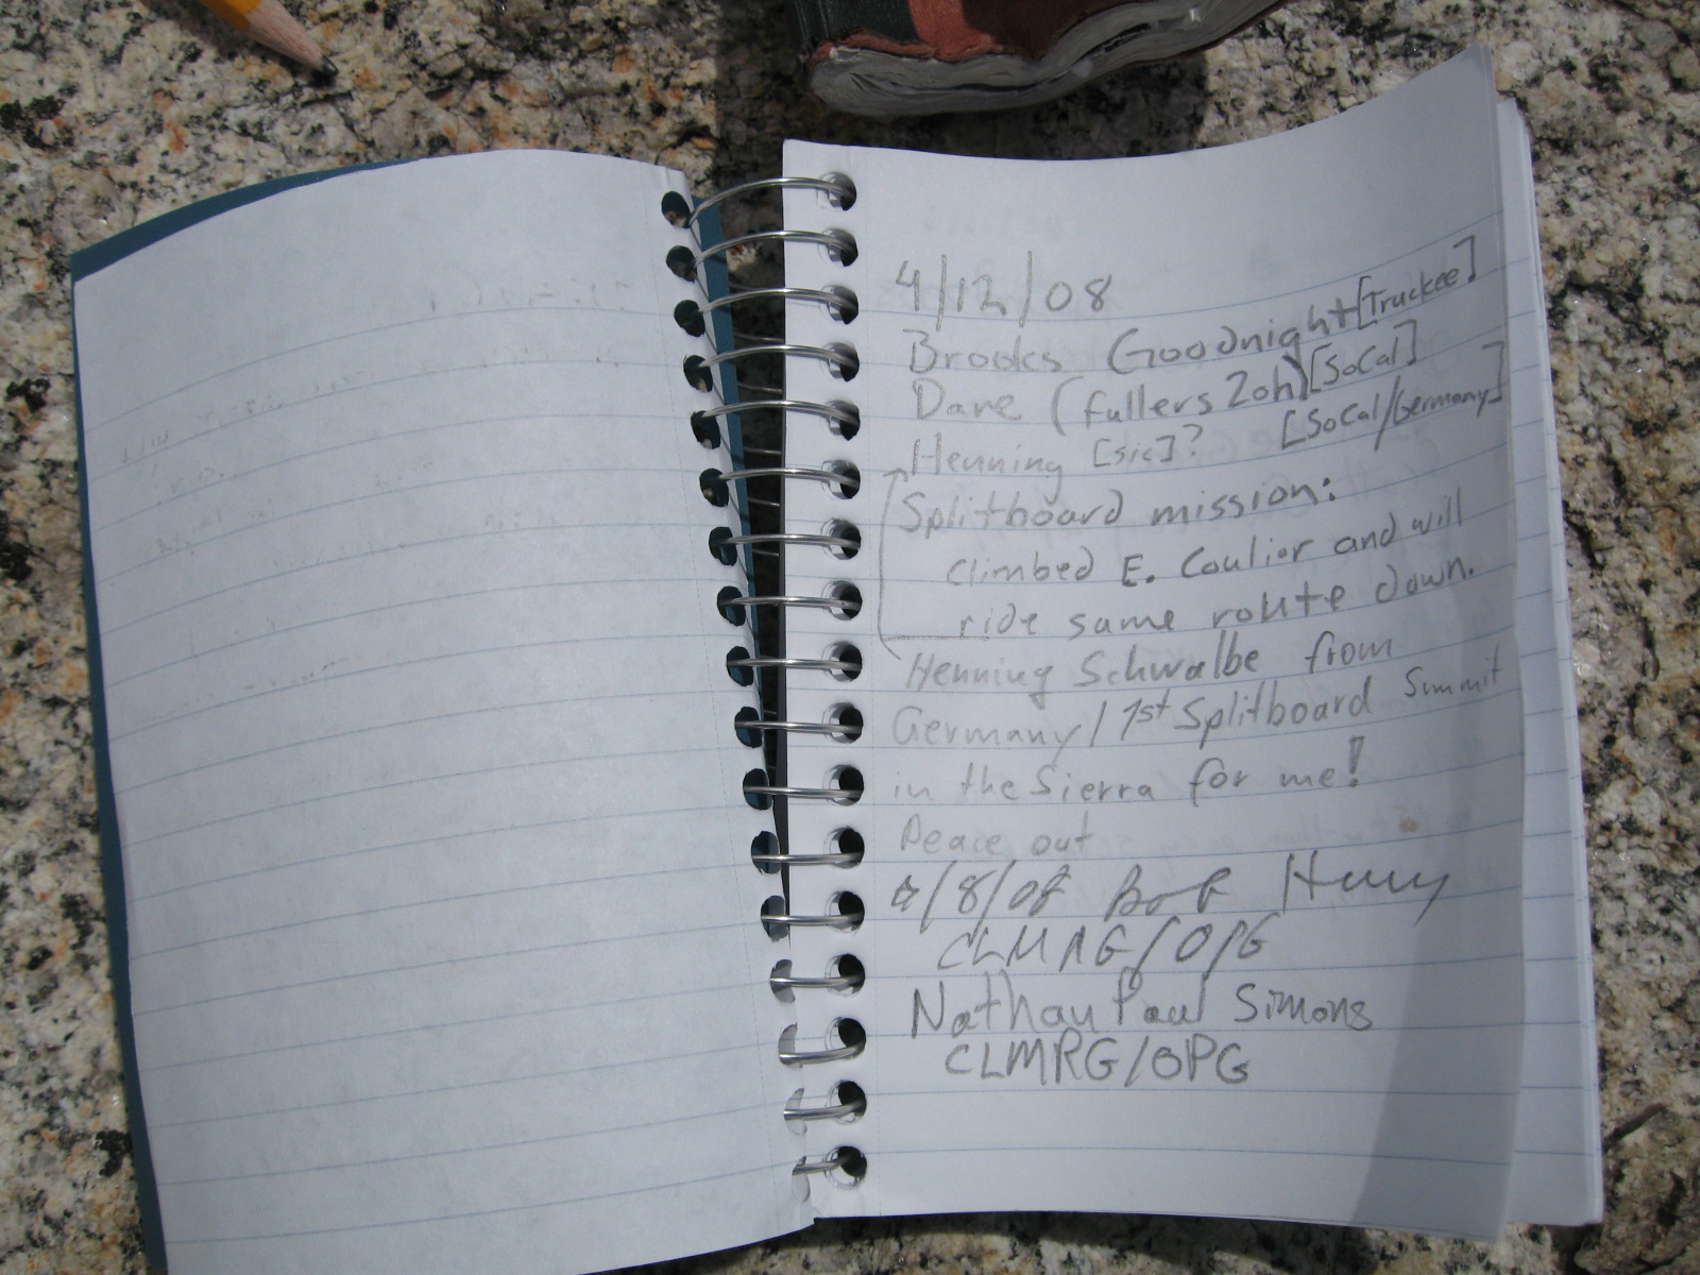 4/12/08
Brooks Goodnight [Truckee]
Dave (fullers2oh) [SoCal]
Henning [sic]? [SoCal/Germany]
Splitboard mission:
climbed E. Coulior and will
ride same route down.
Henning Schwalbe from
Germany / 1st Splitboard Summit
in the Sierra for me!
Peace out
/8/08 Bob
CLMRG/OPG
Nathan Paul Simons
CLMRG/OPG